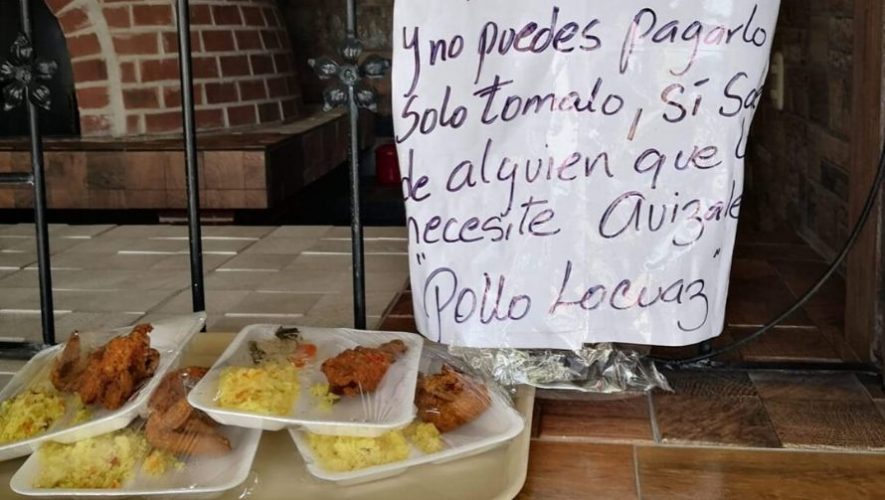 y no puedes pagarlo
solo tomalo, si
de alguien que
necesite avizale
"Pollo Locuaz"